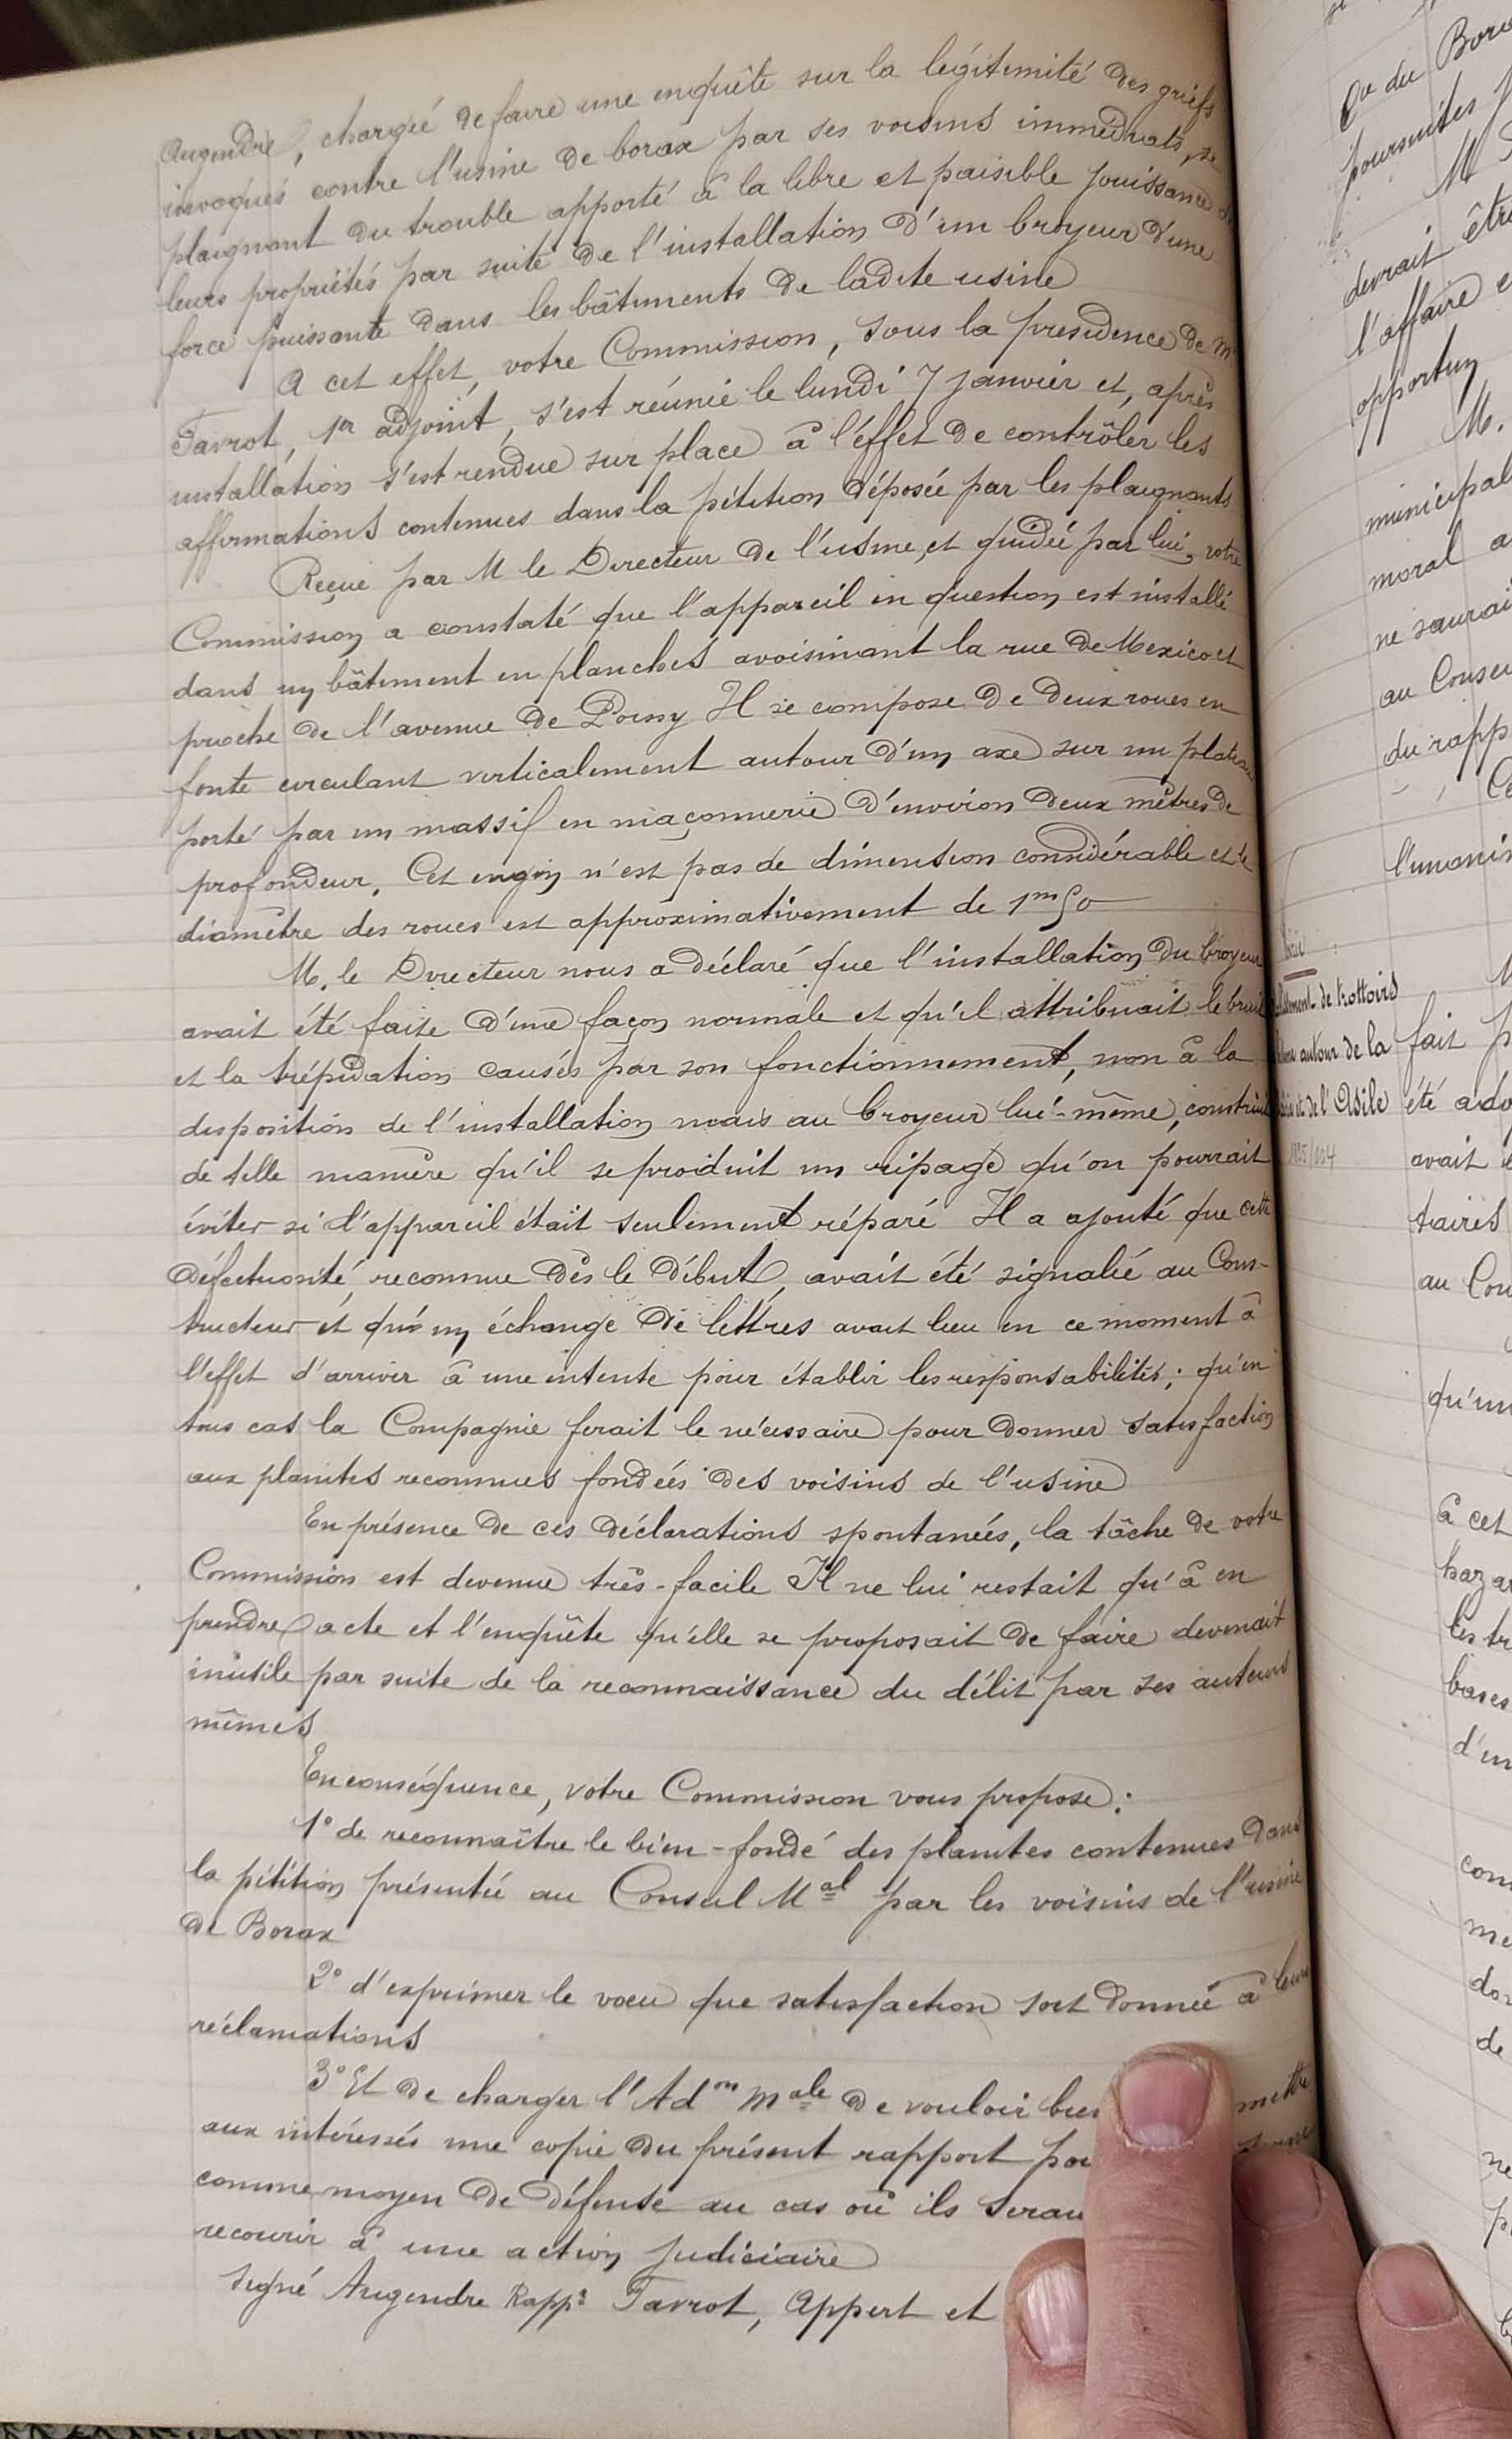 Augendre, chargée de faire une enquête sur la légitimité des griefs
invoqués contre l'usine de borax par ses voisins immédiats, se
plaignant du trouble apporté à la libre et paisible jouissance de
leurs propriétés par suite de l'installation d'un broyeur d'une
force puissante dans les bâtiments de ladite usine
A cet effet, votre Commission, sous la présidence de Mr
Tavrot, 1er adjoint, s'est réunie le lundi 7 janvier et, après
installation s'est rendue sur place à l'effet de contrôler les
affirmations contenues dans la pétition déposée par les plaignants
Reçue par M le Directeur de l'usine, et guidée par lui, votre
Commission a constaté que l'appareil en question est installé
dans un bâtiment en planches avoisinant la rue de Mexico et
proche de l'avenue de Poissy Il se compose de deux roues en
fonte circulant verticalement autour d'un axe sur un plateau
porté par un massif en maçonnerie d'environ deux mètres de
profondeur. Cet engin n'est pas de dimension considérable et le
diamètre des roues est approximativement de 1m50
M. le Directeur nous a déclaré que l'installation du broyeur
avait été faite d'une façon normale et qu'il attribuait le bruit
et la trépidation causés par son fonctionnement, non à la
disposition de l'installation mais au broyeur lui-même, construit
de telle manière qu'il se produit un ripage qu'on pourrait
éviter si l'appareil était seulement réparé Il a ajouté que cette
défectuosité, reconnue dès le début, avait été signalée au Cons-
tructeur et qu'un échange de lettres avait lieu en ce moment à
l'effet d'arriver à une entente pour établir les responsabilités; qu'en
tous cas la Compagnie ferait le nécessaire pour donner satisfaction
aux plaintes reconnues fondées des voisins de l'usine
En présence de ces déclarations spontanées, la tâche de votre
Commission est devenue très-facile Il ne lui restait qu'à en
prendre acte et l'enquête qu'elle se proposait de faire devenait
inutile par suite de la reconnaissance du délit par ses auteurs
mêmes
En conséquence, votre Commission vous propose:
1° de reconnaître le bien-fondé des plaintes contenues dans
la pétition présentée au Conseil Mal par les voisins de l'usine
de Borax
2° d'exprimer le vœu que satisfaction soit donnée à leurs
réclamations
3° Et de charger l'Adon male de vouloir bien mettre
aux intéressés une copie du présent rapport
comme moyen de défense au cas où ils
recourir à une action judiciaire
Signé Augendre Rappr Tavrot, Appert et
de trottoirs
autour de la
de l'Asile
Ou du
poursuites
M
devrait être
l'affaire
opportun
M.
moral
ne
au
du
fait
été
avait
au
à cet
les
bases
de